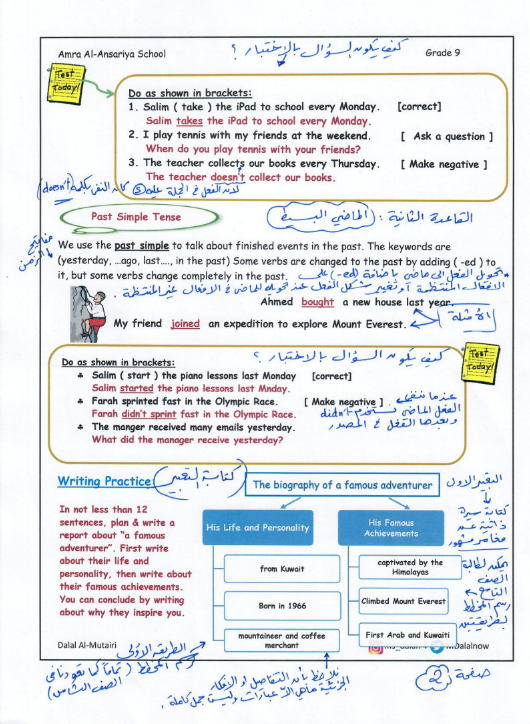 Amra Al-Ansariya School
كيف يكون السؤال بالاختبار ؟
Grade 9
Test Today!
Do as shown in brackets:
1. Salim ( take ) the iPad to school every Monday. [correct]
Salim takes the iPad to school every Monday.
2. I play tennis with my friends at the weekend. [ Ask a question ]
When do you play tennis with your friends?
3. The teacher collects our books every Thursday. [ Make negative ]
The teacher doesn't collect our books.
لأن الفعل في الجملة عليه s كان النفي بكلمة (doesn't)
Past Simple Tense
القاعدة الثانية : (الماضي البسيط)
مفاتيح الزمن
We use the past simple to talk about finished events in the past. The keywords are
(yesterday, …ago, last…., in the past) Some verbs are changed to the past by adding ( -ed ) to
it, but some verbs change completely in the past.
* تحويل الفعل إلى ماضي بإضافة (ed-) على
الأفعال المنتظمة أو تغيير شكل الفعل عند تحويله للماضي في الأفعال غير المنتظمة .
Ahmed bought a new house last year.
My friend joined an expedition to explore Mount Everest.
الأمثلة
كيف يكون السؤال بالاختبار ؟
Test Today!
Do as shown in brackets:
♣ Salim ( start ) the piano lessons last Monday [correct]
Salim started the piano lessons last Mnday.
♣ Farah sprinted fast in the Olympic Race. [ Make negative ]
Farah didn't sprint fast in the Olympic Race.
♣ The manger received many emails yesterday.
What did the manager receive yesterday?
عندما ننفي
الفعل الماضي نستخدم didn't
وبعدها الفعل في المصدر
Writing Practice
(كتابة التعبير)
The biography of a famous adventurer
التعبير الأول
كتابة سيرة
ذاتية عن
مغامر مشهور
In not less than 12
sentences, plan & write a
report about "a famous
adventurer". First write
about their life and
personality, then write about
their famous achievements.
You can conclude by writing
about why they inspire you.
His Life and Personality
from Kuwait
Born in 1966
mountaineer and coffee
merchant
His Famous
Achievements
captivated by the
Himalayas
Climbed Mount Everest
First Arab and Kuwaiti
يمكن لطالبة
الصف
التاسع
رسم المخطط
بطريقتين
Dalal Al-Mutairi
الطريقة الأولى
رسم المخطط (تماماً كما تعودنا في
الصف الثامن)
نلاحظ بأن التفاصيل أو الأفكار
الجزئية ماهي إلا عبارات وليست جمل كاملة .
صفحة 2